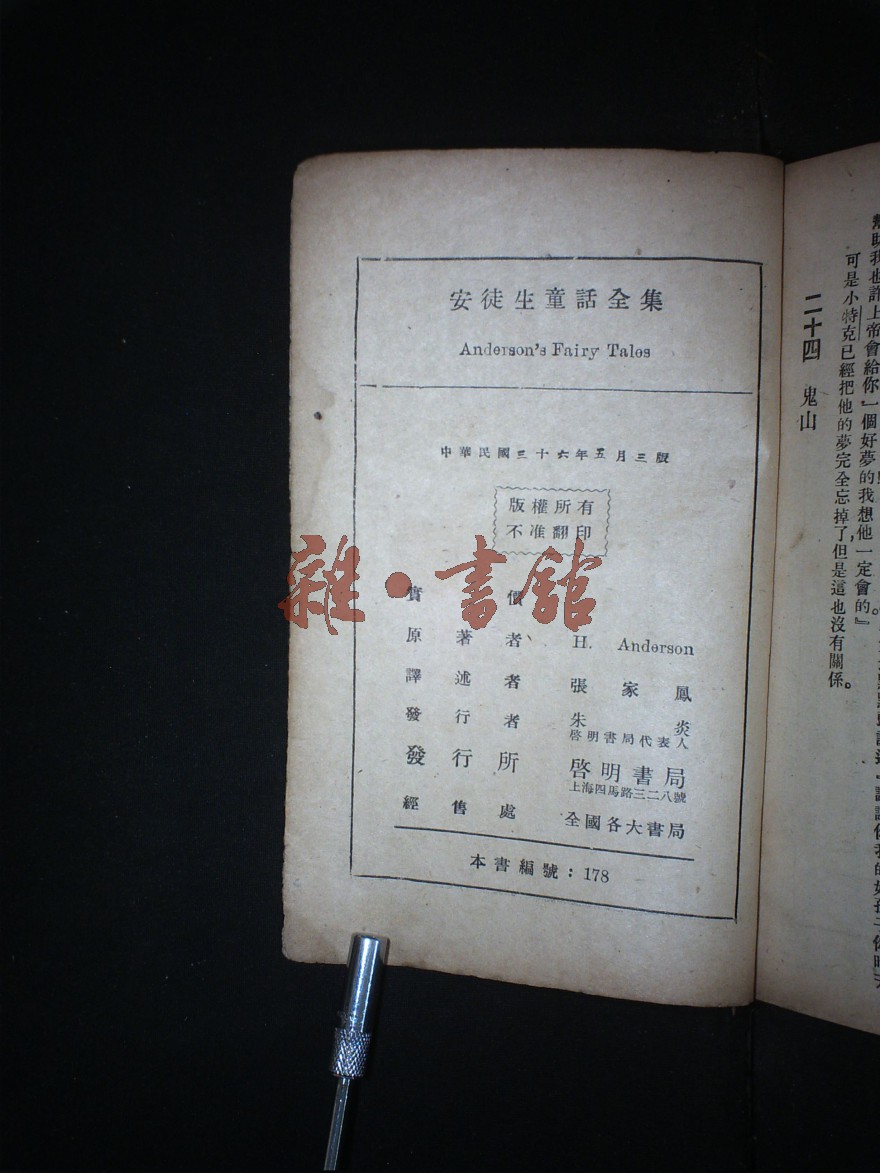 安徒生童話全集
Anderson's Fairy Tales
中華民國三十六年五月三版
版權所有
不准翻印
實 價
原著者 H. Anderson
譯述者 張家鳳
發行者 朱炎
啓明書局代表人
發行所 啓明書局
上海四馬路三二八號
經售處 全國各大書局
本書編號：178
雜·書館
我也許上帝會給你一個好夢的我想他一定會的』
可是小特克已經把他的夢完全忘掉了但是這也沒有關係。
二十四 鬼山